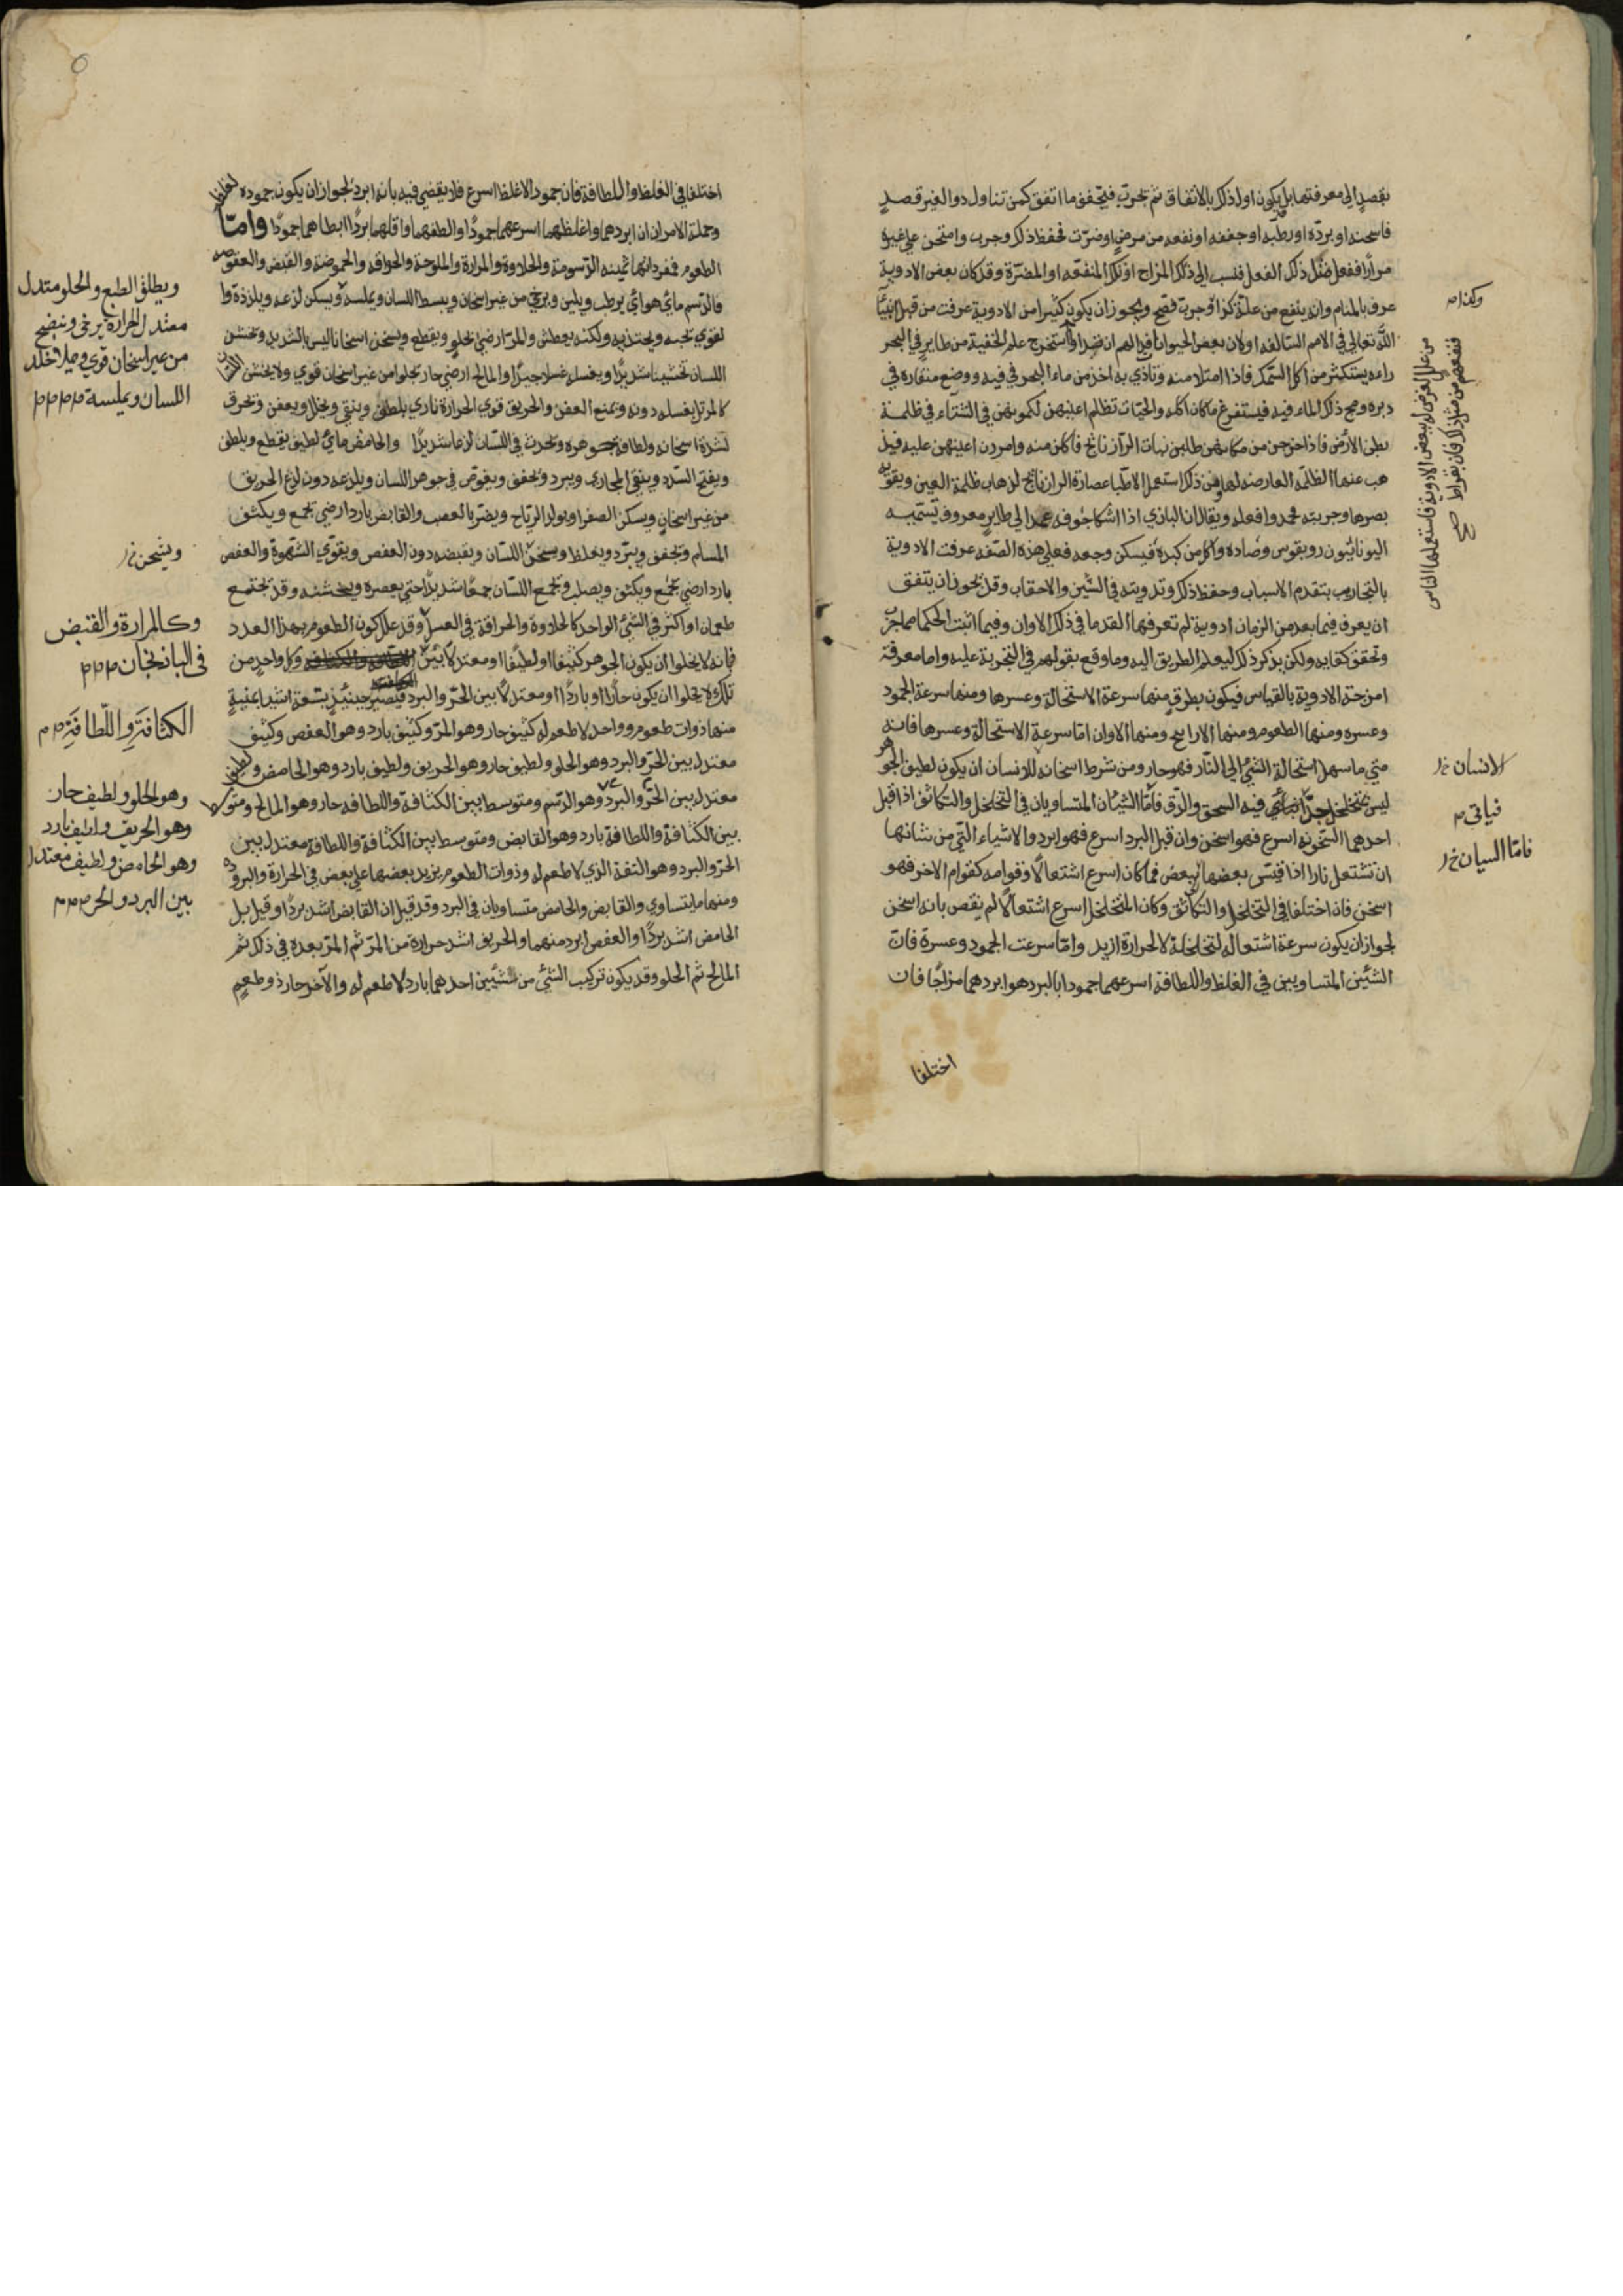 بقصدٍ الى معرفتها بل يكون اولا ذلك بالاتفاق ثم تجرّب فيتحقق ما اتفق كمن تناول دوا لغير قصدٍ
فاسخنه او برّده او رطبه او جففه او نفعه من مرضٍ او ضرّت فحفظ ذلك وجرب وامتحن على غيره
مرارا ففعل مثل ذلك الفعل فنسب الى ذلك المزاج او تلك المنفعه او المضرّة وقد كان بعض الادوية
عرف بالمنام وانه ينفع من علة كذا وجرب فصح ويجوز ان يكون كثيرا من الادوية عرفت من قبل انبيآ
الله تعالى في الامم السالفه اولان بعض الحيوانات الهم ان استخرج علم الحقنة من طاير في البحر
راءه يستكثر من اكل السمك فاذا امتلا منه وتاذي به اخذ من ماء البحر في فيه ووضع منقاره في
دبره ومج ذلك الماء فيه فيستفرغ ما كان اكله والحيّات تظلم اعينهن لكمونهن في الشتآء في ظلمة
بطن الارض فاذا خرجن من مكامنهن طلبن نبات الرازيانج فاكلن منه وامررن اعينهن عليه فيذ
هب عنها الظلمة العارضه لها فمن ذلك استعمل الاطبا عصارة الرازيانج لذهاب ظلمة العين ويقوّيه
بصرها وجربته فحمدوا فعله ويقال ان البازي اذا اشتكا جوفه عمد الى طايرٍ معروف تسميه
اليونانيّون روبقوس وصاده واكل من كبده فيسكن وجعه فعلى هذه الصفه عرفت الادوية
بالتجاريب بتقدم الاسباب وحفظ ذلك وتدوينه في السّنين والاحقاب وقد يجوز ان يتفق
ان يعرف فيما بعد من الزمان ادوية لم تعرفها القدما في ذلك الاوان وفيما اثبت الحكما مما جرّب
وتحقق كفايه ولكن يذكر ذلك ليعلم الطريق اليه وما وقع بقولهم في التجربة عليه واما معرفة
امزجة الادوية بالقياس فيكون بطرقٍ منها سرعة الاستحالة وعسرها ومنها سرعة الجمود
وعسره ومنها الطعوم ومنها الارايح ومنها الالوان امّا سرعة الاستحالة وعسرها فانه
متى ما سهل استحالة الشئ الى النّار فهو حار ومن شرط اسخانه للانسان ان يكون لطيف الجوهر
ليس بمتخلخل جدّا فيه السحق والدّق فامّا الشيئان المتساويان في التخلخل والتكاثف اذا قبل
احدهما السّخونه اسرع فهو اسخن وان قبل البرد اسرع فهو ابرد والاشياء التي من شانها
ان تشتعل نارا اذا قيس بعضها ببعض فما كان اسرع اشتعالًا وقوامه كقوام الاخر فهو
اسخن فان اختلفا في التخلخل والتكاثف وكان المتخلخل اسرع اشتعالًا لم يقض بانه اسخن
لجواز ان يكون سرعة اشتعاله لتخلخله لا لحرارة ازيد وامّا سرعت الجمود وعسره فانّ
الشئين المتساويين في الغلظ واللطافة اسرعهما جمودا بالبرد هو ابردهما مزاجًا فان
اختلفا
وكذا ص
من علل العرض له ببعض الادوية فاستعملها الناس
فنفعهم من مثل ذلك فان بقراط صح
الانسان خ
فياتى م
فامّا السيان خ
اختلفا في الغلظ واللطافة فان جمود الاغلظ اسرع فلا يقضي فيه بانه ابرد لجواز ان يكون جموده لغلظٍ
وجملة الامران ان ابردهما واغلظهما اسرعهما جمودًا والطفهما واقلهما بردًا ابطاهما جمودًا وامّا
الطعوم فمفرداتها ثمنيه الدّسومة والحلاوة والمرارة والملوحة والحرافه والحموضة والقبض والعفوصه
فالدّسم مائي هوائي يرطب ويلين ويرخي من غير اسخان ويبسط اللسان ويملسه ويسكن لذعه ويلززه وا
لقوي تحبه ويجتذبه ولكنه يعطش والمرّ ارضي يجلو ويقطع ويسخن اسخانا ليس بالشديد وتخشن
اللسان تخشينا شديدًا ويغسله غسلا جيدًا والمالح ارضي حار يجلوا من غير اسخان قوي ولا يخشن اللسان
كالمر بل يغسله دونه ويمنع العفن والحريق قوي الحرارة ناري يلطف وينقي ويحلل ويعفن ويحرق
لشدة اسخانه ولطافة جوهره ويحدث في اللسان لذعا شديدًا والحامض مائي لطيف يقطع ويلطف
ويفتح السّدد وينقي المجاري ويبرد ويجفف ويغوص في جوهر اللسان ويلذعه دون لذع الحريق
من غير اسخانٍ ويسكن الصفرا ويولد الرّياح ويضر بالعصب والقابض بارد ارضي يجمع ويكثف
المسام ويجفف ويبرّد ويغلظ ويسخن اللسّان ويقبضه دون العفص ويقوّي الشهوة والعفص
بارد ارضي يجمع ويكثف ويصلب ويجمع اللسّان جمعًا شديدًا حتى يعصره ويخشنه وقد تجتمع
طعمان او اكثر في الشئ الواحد كالحلاوة والحرافة في العسل وقد علل كون الطعوم بهذا العدد
فانه لا يخلوا ان يكون الجوهر كثيفا او لطيفًا او معتدلًا بين وكل واحدٍ من
تلك لا يخلوا ان يكون حارًا او باردًا او معتدلًا بين الحرّ والبرد فيصير حينئيذٍ بتسعة اشيا ثمنيةٍ
منها ذوات طعوم وواحد لا طعم له كثيف حار وهو المرّ وكثيف بارد وهو العفص وكثيف
معتدل بين الحرّ والبرد وهو الحلو ولطيف حار وهو الحريق ولطيف بارد وهو الحامض ولطيف
معتدل بين الحرّ والبرد وهو الدّسم ومتوسط بين الكثافة واللطافه حار وهو المالح ومتوسط
بين الكثافة واللطافة بارد وهو القابض ومتوسط بين الكثافة واللطافة معتدل بين
الحرّ والبرد وهو التفه الذي لا طعم له وذوات الطعوم يزيد بعضها على بعض في الحرارة والبروده
ومنها ما يتساوي والقابض والحامض متساويان في البرد وقد قيل ان القابض اشد بردًا وقيل بل
الحامض اشد بردًا والعفص ابرد منهما والحريق اشد حرارة من المرّ ثم المرّ بعده في ذلك ثم
المالح ثم الحلو وقد يكون تركيب الشئ من شيئين احدهما بارد لا طعم له والآخر حار ذو طعمٍ
ويطلق الطبع والحلو متدل
معتدل الحرارة يرخى وينضج
من غير اسخان قوي ويملا خلل
اللسان ويملسه م م م م
ويسخن خ
وكالمرارة والقبض
فى الباذنجان م م م
الكثافَةِ واللّطافَةِ م م
وهو الحلو ولطيف حار
وهو الحريف ولطيف بارد
وهو الحامض ولطيف معتدل
بين البرد والحر م م م